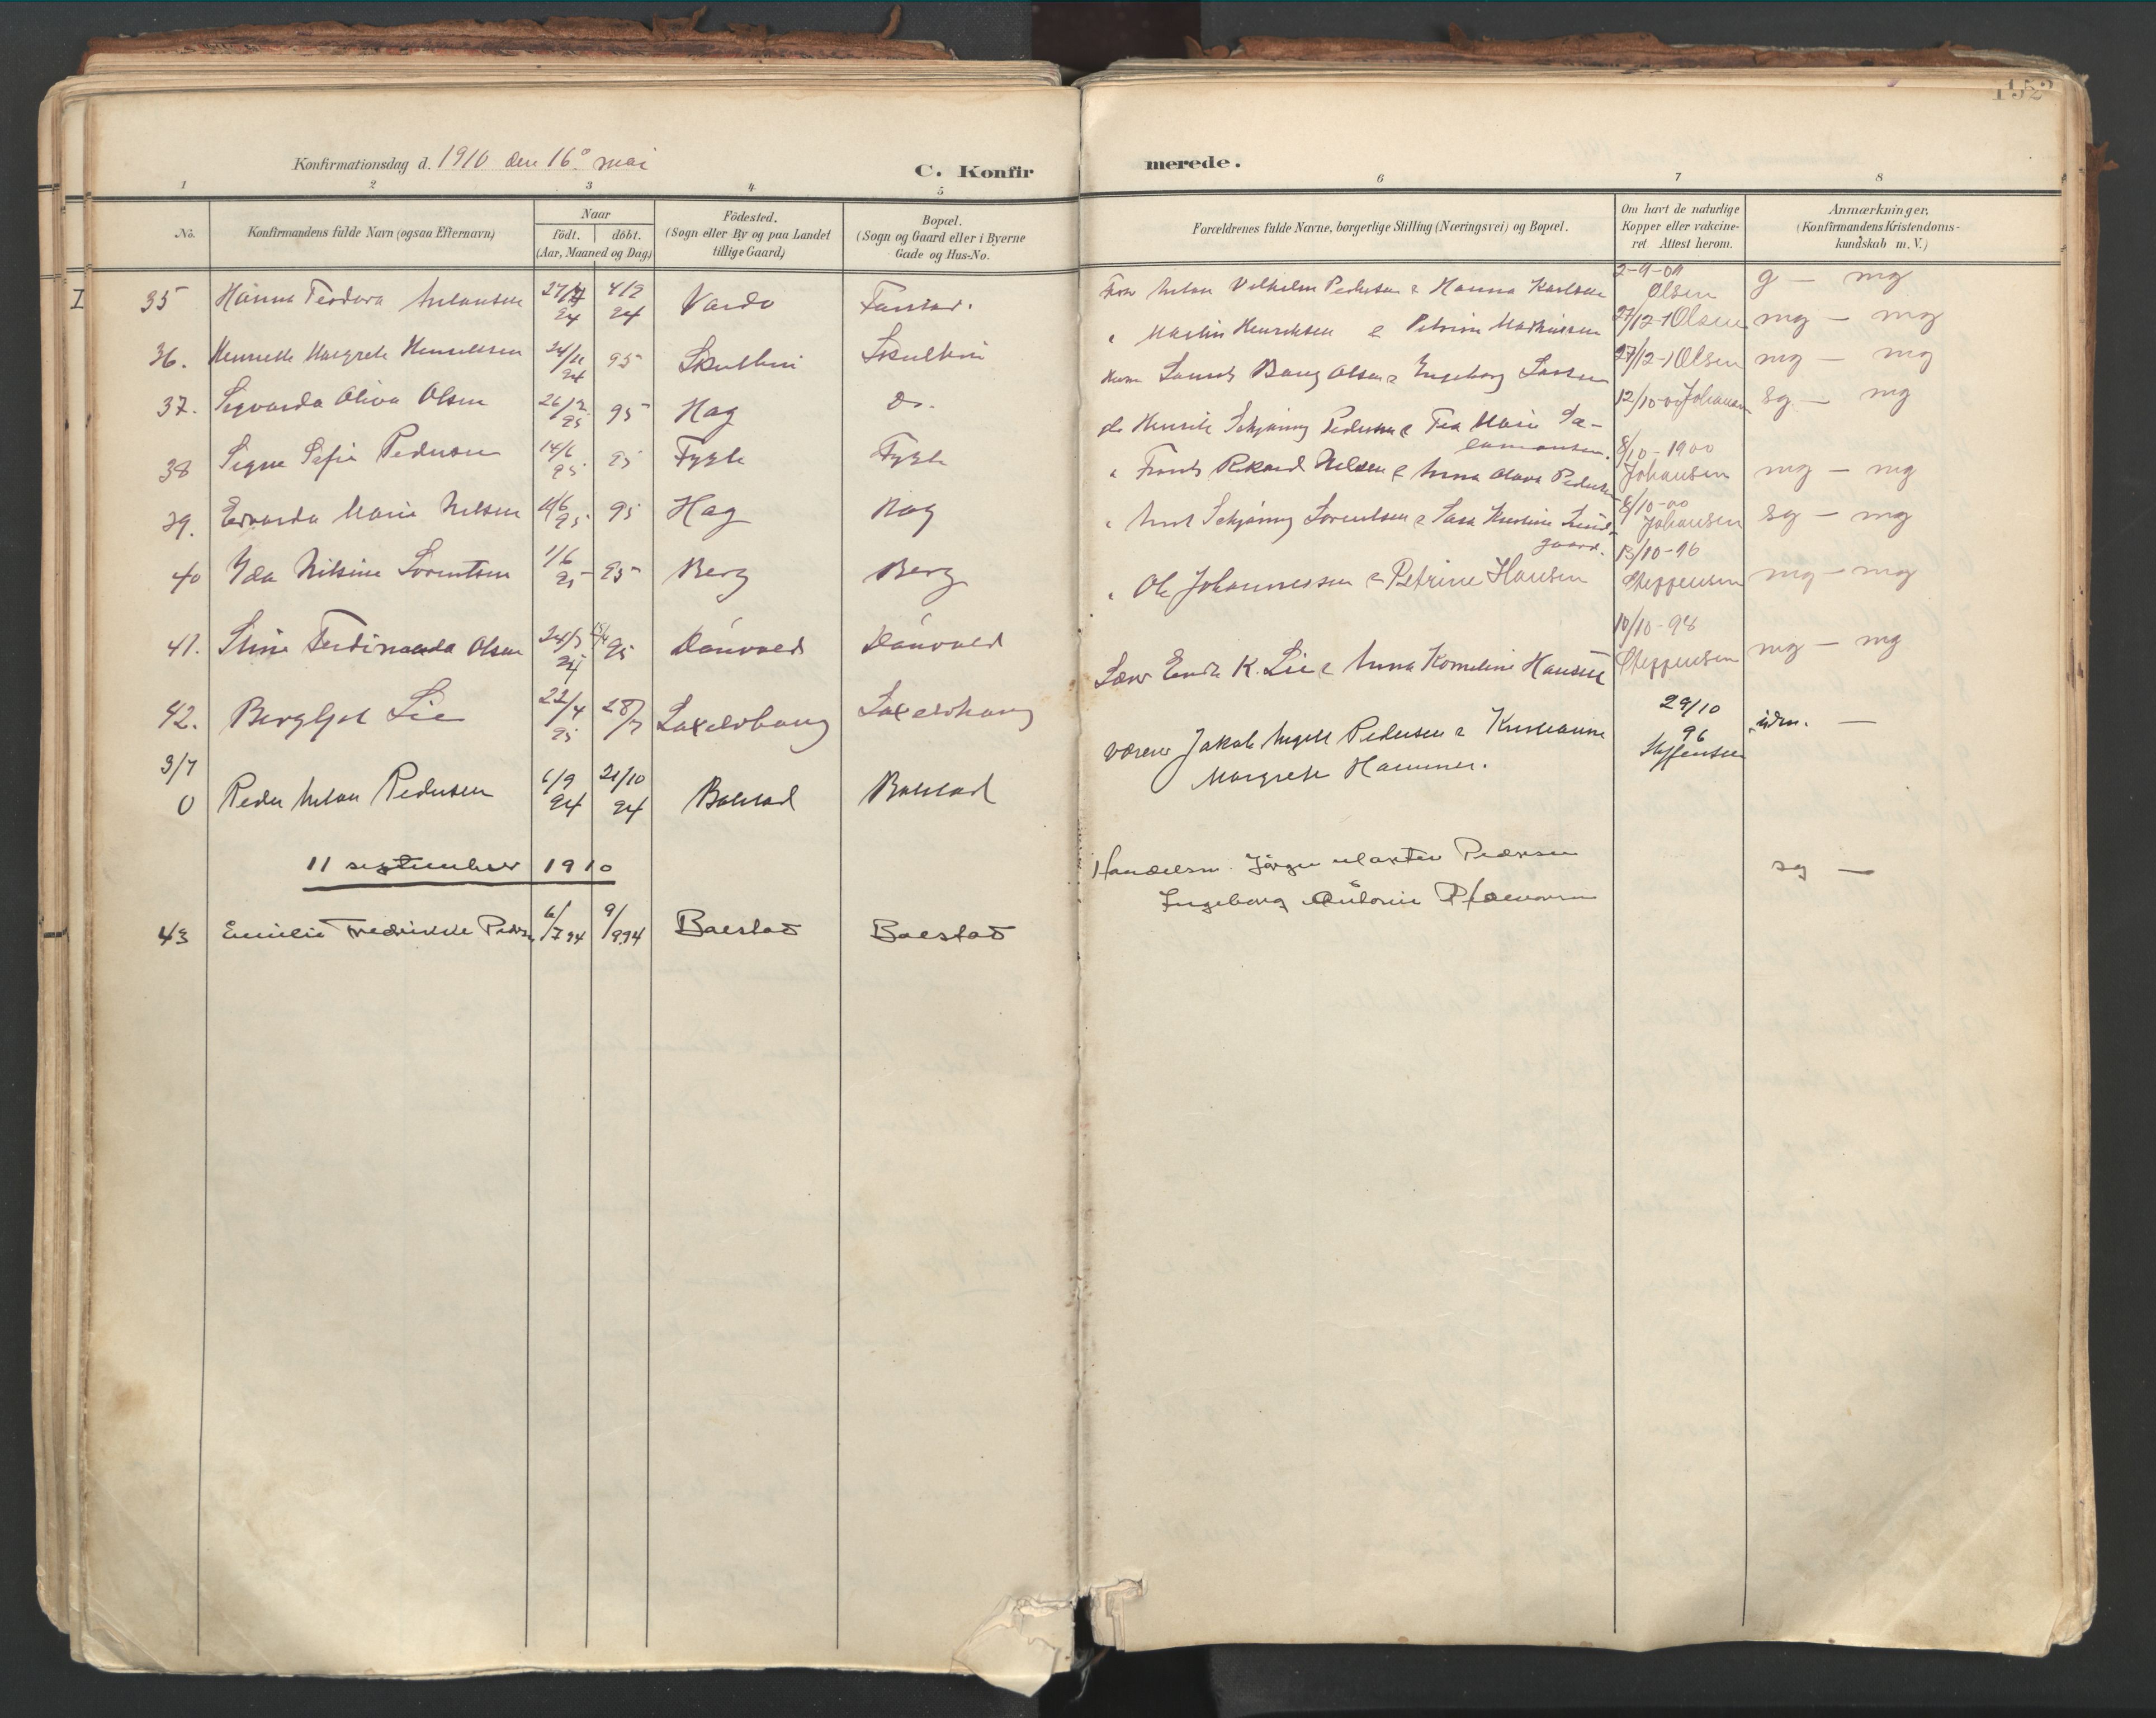 152
Konfirmationsdag d. 1910 den 16de mai
C. Konfirmerede.
1 2 3 4 5 6 7 8
No.
Konfirmandens fulde Navn (ogsaa Efternavn)
Naar
födt. döbt.
(Aar, Maaned og Dag)
Födested.
(Sogn eller By og paa Landet
tillige Gaard)
Bopæl.
(Sogn og Gaard eller i Byerne
Gade og Hus-No.
Forældrenes fulde Navne, borgerlige Stilling (Næringsvei) og Bopæl.
Om havt de naturlige
Kopper eller vakcine-
ret. Attest herom.
Anmærkninger,
(Konfirmandens Kristendoms-
kundskab m. V.)
I 35 Hanna Teodora Antonsen 94 4/2 94 Vardö Anton Vilhelm Pedersen & Hanna Karlsen Olsen g — mg
36. Henrikke Margrete Henriksen 24/11 94 95 Skulbru Skulbru Martin Henriksen & Petrine Mathiassen 27/12-1 Olsen mg — mg
37. Sigvarda Oliva Olsen 26/2 95 95 Hag do. Laurits Bang Olsen & Ingeborg Larsen 27/12-1 Olsen mg — mg
38 Signe Sofie Pedersen 14/6 95 95 Fygle Fygle do Henrik Schjöning Pedersen & Tea Marie Sa-
lamonsen. 12/10-00 Johansen sg — mg
39. Edvarda Marie Nilsen 4/6 95 95 Hag Hag " Frants Rikard Nilsen & Anna Olava Pedersen 8/10-1900 Johansen mg — mg
40 Yda Nilsine Sorentsen 1/6 95 95 Berg Berg " Arnt Schjöning Sorentsen & Sara Kristine Lund
gaard. 8/10-00 Johansen sg — mg
41. Stine Ferdinanda Olsen 24/3 95 Ole Johannessen & Petrine Hansen 13/10-96 Steffensen mg — mg
42. Bergljot Lie 22/4 95 28/7 Laxelvhaug Laxelvhaug Lærer K. Lie & Anna Korneline Hansen 10/10-98 Steffensen mg — mg
3/7
0 Peder Anton Pedersen 6/9 94 21/10 94 Balstad Balstad Væreier Jakob Angell Pedersen & Kristianne
Margrete Hammer. 29/10 96 Steffensen udm. —
11 september 1910
43 Emilie Fredrikke Peders. 6/7 94 9/9 94 Balstad Balstad Handelsm. Jörgen Martin Pedersen
Ingeborg Antonie sg —